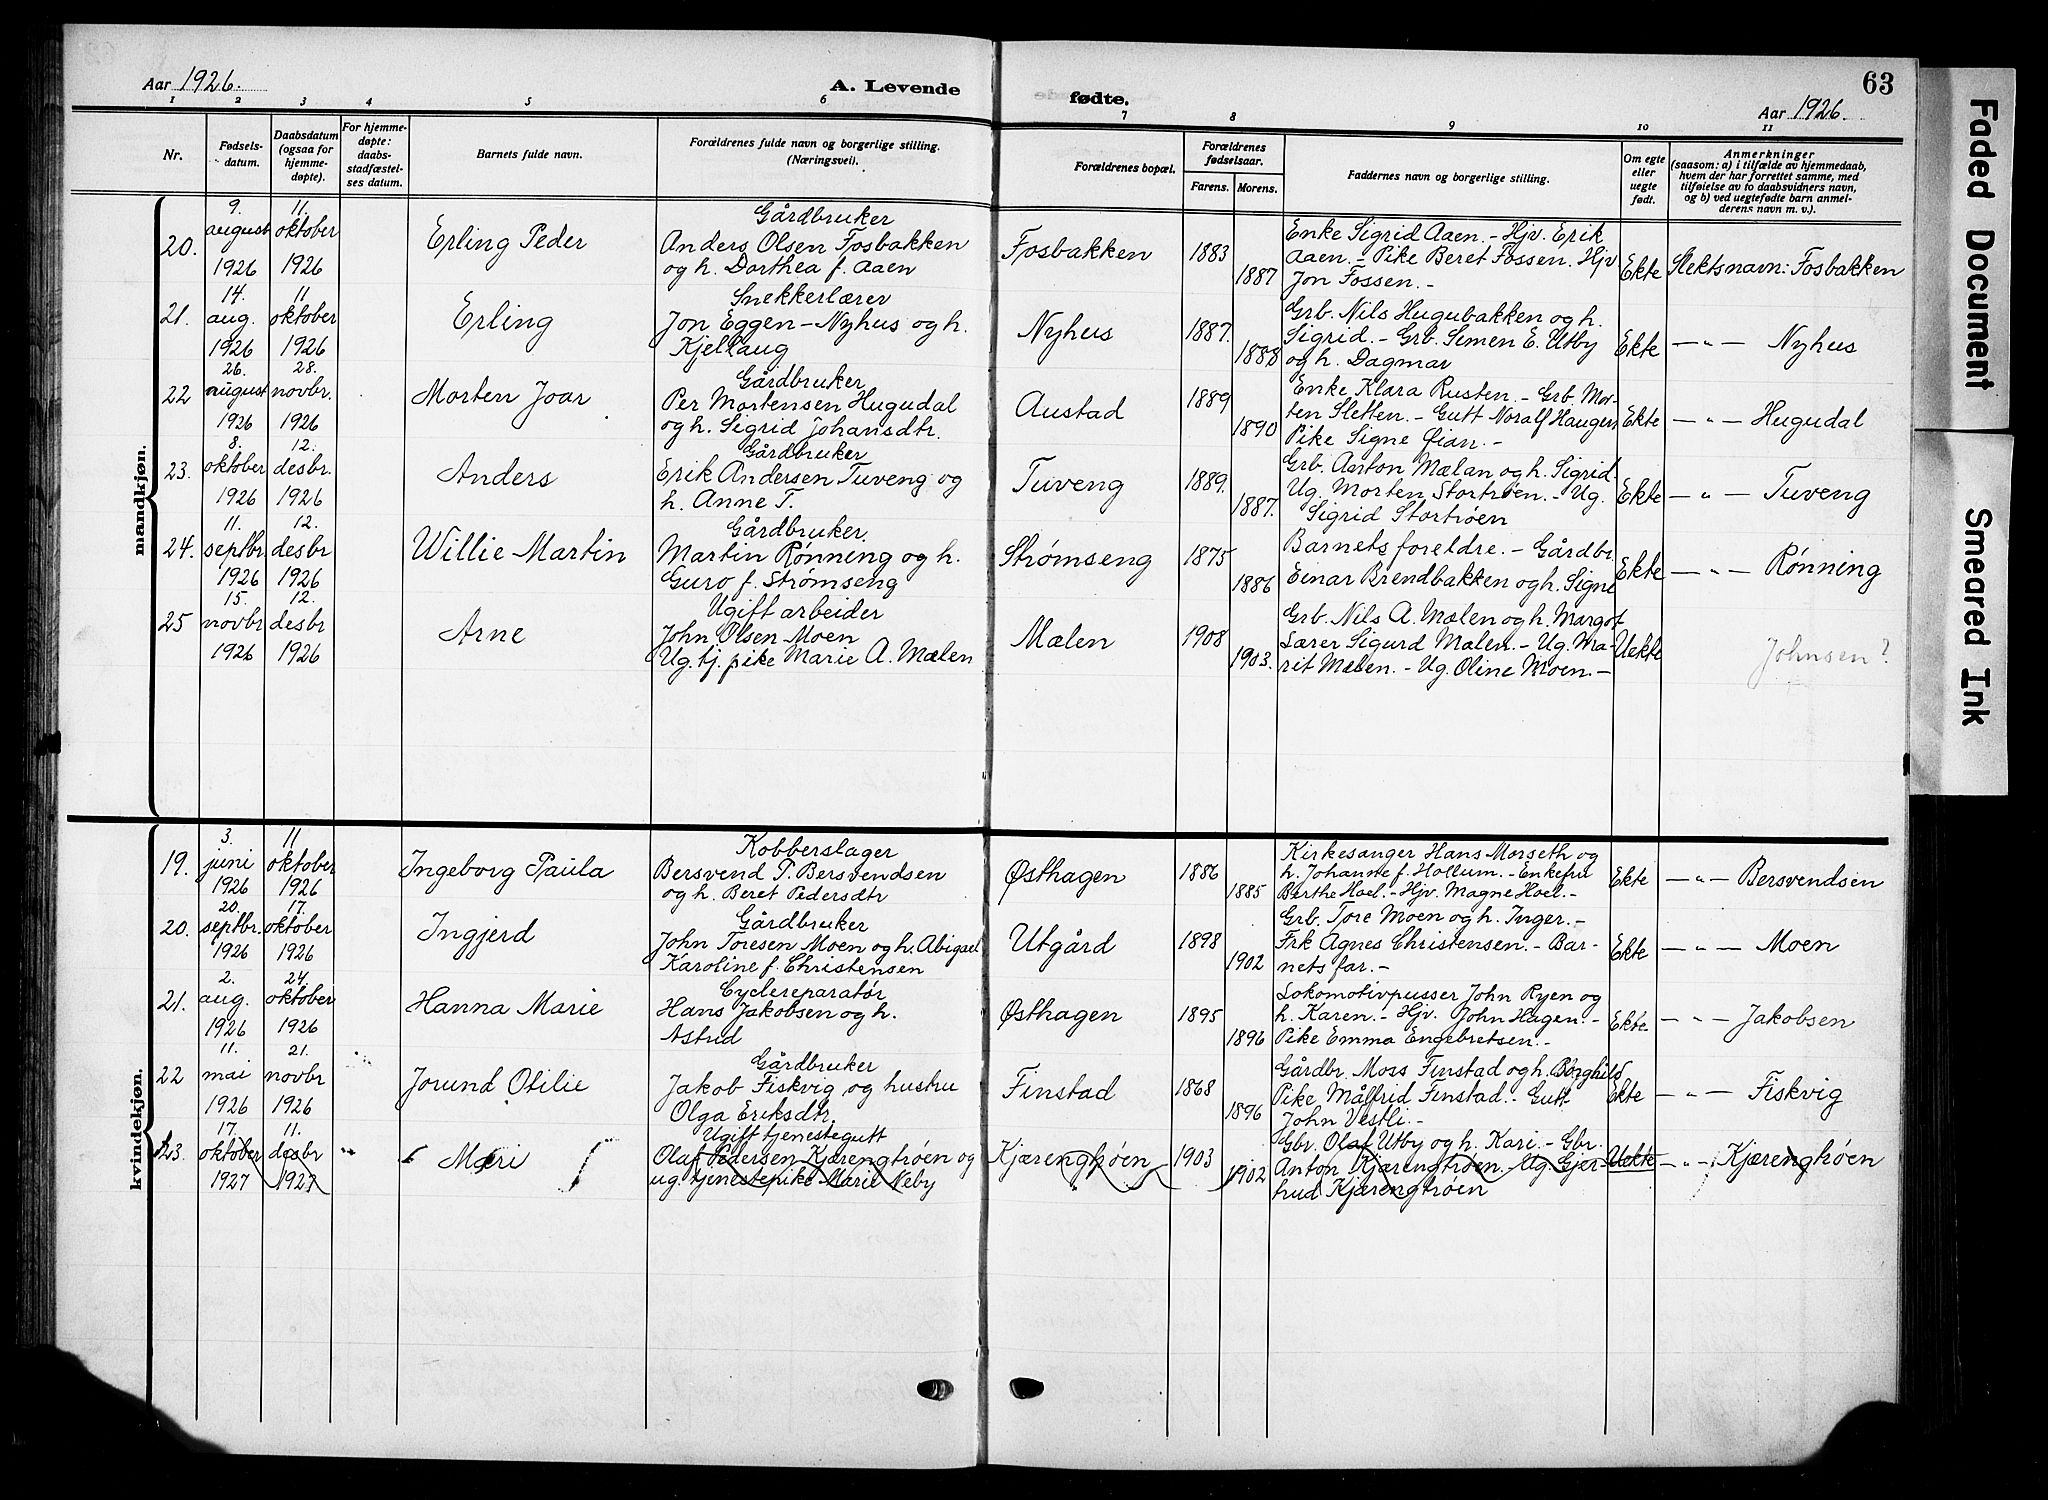 Aar 1926. A. Levende fødte. Aar 1926. 63
1 2 3 4 5 6 7 8 9 10 11
Nr.
Fødsels-
datum.
Daabsdatum
(ogsaa for
hjemme-
døpte).
For hjemme-
døpte:
daabs-
stadfæstel-
ses datum.
Barnets fulde navn.
Forældrenes fulde navn og borgerlige stilling.
(Næringsvei).
Forældrenes bopæl.
Forældrenes
fødselsaar.
Farens. Morens.
Faddernes navn og borgerlige stilling.
Om egte
eller
uegte
født.
Anmerkninger
(saasom: a) i tilfælde av hjemmedaab,
hvem der har forrettet samme, med
tilføielse av to daabsvidners navn,
og b) ved uegtefødte barn anmel-
derens navn m. v.).
mandkjøn.
20.
9.
august
1926
11.
oktober
1926
Erling Peder
Gårdbruker
Anders Olsen Fosbakken
og h. Dorthea f. Aaen
Fosbakken
1883
1887
Enke Sigrid Aaen. - Hjv. Erik
Aaen. - Pike Beret Fossen. Hjv
Jon Fossen. -
Ekte
Slektsnavn: Fosbakken
21.
14.
aug.
1926
11
oktober
1926
Erling
Snekkerlærer
Jon Eggen - Nyhus og h.
Kjellaug
Nyhus
1887.
1888
Grb. Nils Hugubakken og h.
Sigrid. - Grb. Simen E. Utby
og h. Dagmar
Ekte
- " - Nyhus
22
26.
august
1926
28.
novbr.
1926
Morten Joar
Gårdbruker
Per Mortensen Hugudal
og h. Sigrid Johansdtr.
Austad
1889
1890
Enke Klara Rusten. - Grb. Mor-
ten Sletten. - Gutt Noralf Haugen
Pike Signe Øian. -
Ekte
- " - Hugudal
23.
8.
oktober
1926
12.
desbr.
1926
Anders
Gårdbruker
Erik Andersen Tuveng og
h. Anne T.
Tuveng
1889.
1887.
Grb. Anton Mælan og h. Sigrid.
Ug. Morten Stortrøen. - Ug.
Sigrid Stortrøen
Ekte
- " - Tuveng
24.
11.
septbr
1926
12.
desbr.
1926
Willie Martin
Gårdbruker.
Martin Rønning og h.
Guro f. Strømseng
Strømseng
1875
1886
Barnets foreldre. - Gårdbr.
Einar Brendbakken og h. Signe
Ekte
- " - Rønning
25
15.
novbr
1926
12.
desbr
1926
Arne
Ugift arbeider
John Olsen Moen
Ug. tj. pike Marie A. Mælen
Mælen
1908
1903.
Grb. Nils A. Mælen og h. Margot
Lærer Sigurd Mælen. - Ug. Ma-
rit Mælen. - Ug. Oline Moen. -
Uekte
Johnsen?
kvindekjøn.
19.
3.
juni
1926
11
oktober
1926
Ingeborg Paula
Kobberslager
Bersvend P. Bersvendsen
og h. Beret Pedersdtr
Østhagen
1886
1885
Kirkesanger Hans Morseth og
h. Johanne f. Hollum. - Enkefru
Berthe Hoel. - Hjv. Magne Hoel. -
Ekte
- " - Bersvendsen
20.
20.
septbr.
1926
17.
oktober
1926
Ingjerd
Gårdbruker
John Toresen Moen og h. Abigael
Karoline f. Christensen
Utgård
1898
1902
Grb. Tore Moen og h. Inger. -
Frk Agnes Christensen. - Bar-
nets far. -
Ekte
- " - Moen
21.
2.
aug.
1926
24.
oktober
1926
Hanna Marie
Cyclereparatør
Hans Jakobsen og h.
Astrid
Østhagen
1895
1896
Lokomotivpusser John Ryen og
h. Karen. - Hjv. John Hagen. -
Pike Emma Engebretsen. -
Ekte
- " - Jakobsen
22
11.
mai
1926
21.
novbr
1926
Jorund Otilie
Gårdbruker
Jakob Fiskvig og hustru
Olga Eriksdtr
Finstad
1868
1896
Gårdbr. Moss Finstad og h. Borghild
Pike Målfrid Finstad. - Gutt
John Vestli. -
Ekte
- " - Fiskvig
23.
17.
oktober
1927
11.
desbr
1927
Mari
Ugift tjenestegutt
Olaf Pedersen Kjærengtrøen og
ug. tjenestepike Marie Neby
Kjærengtrøen
1903
1902
Gbr. Olaf Utby og h. Kari. - Gbr.
Anton Kjærengtrøen. - Ug. Gjer-
trud Kjærengtrøen
Uekte
- " - Kjærengtrøen
Faded Document
Smeared Ink